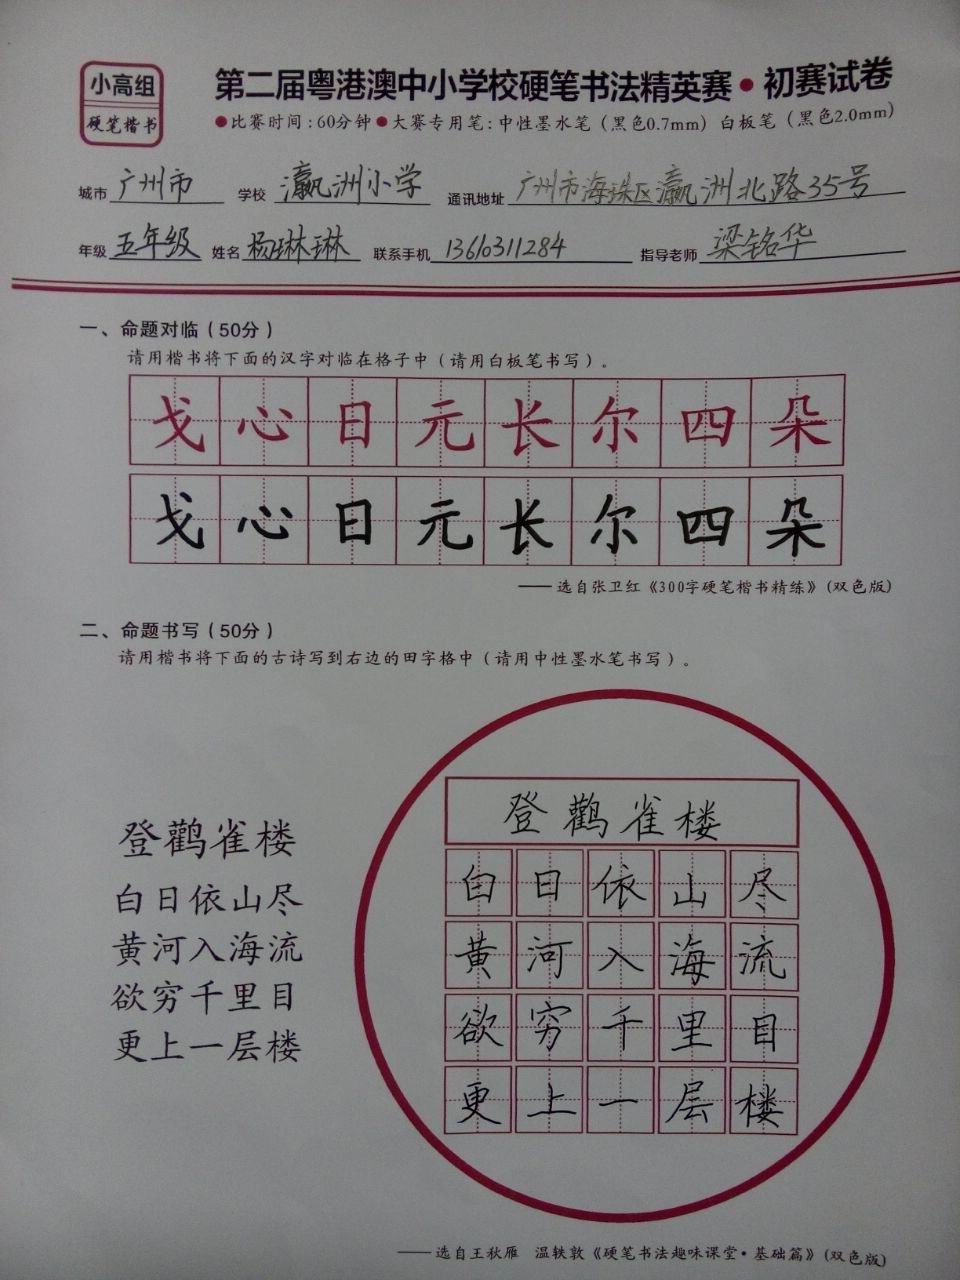 小高组
硬笔楷书
第二届粤港澳中小学校硬笔书法精英赛·初赛试卷
●比赛时间:60分钟●大赛专用笔:中性墨水笔（黑色0.7mm）白板笔（黑色2.0mm）
城市 广州市 学校 瀛洲小学 通讯地址 广州市海珠区瀛洲北路35号
年级 五年级 姓名 杨琳琳 联系手机 13610311284 指导老师 梁铭华
一、命题对临（50分）
请用楷书将下面的汉字对临在格子中（请用白板笔书写）。
戈心日元长尔四朵
戈心日元长尔四朵
——选自张卫红《300字硬笔楷书精练》(双色版)
二、命题书写（50分）
请用楷书将下面的古诗写到右边的田字格中（请用中性墨水笔书写）。
登鹳雀楼
白日依山尽
黄河入海流
欲穷千里目
更上一层楼
登鹳雀楼
白日依山尽
黄河入海流
欲穷千里目
更上一层楼
——选自王秋雁 温轶敦《硬笔书法趣味课堂·基础篇》(双色版)